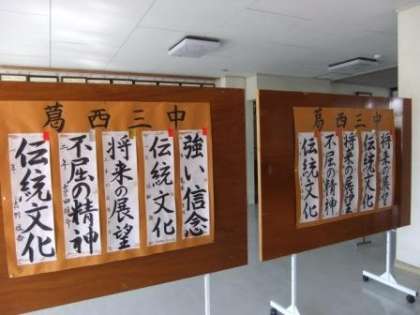 葛西三中
強い信念
伝統文化
将来の展望
不屈の精神
二年
伝統文化
葛西三中
将来の展望
伝統文化
将来の展望
不屈の精神
伝統文化